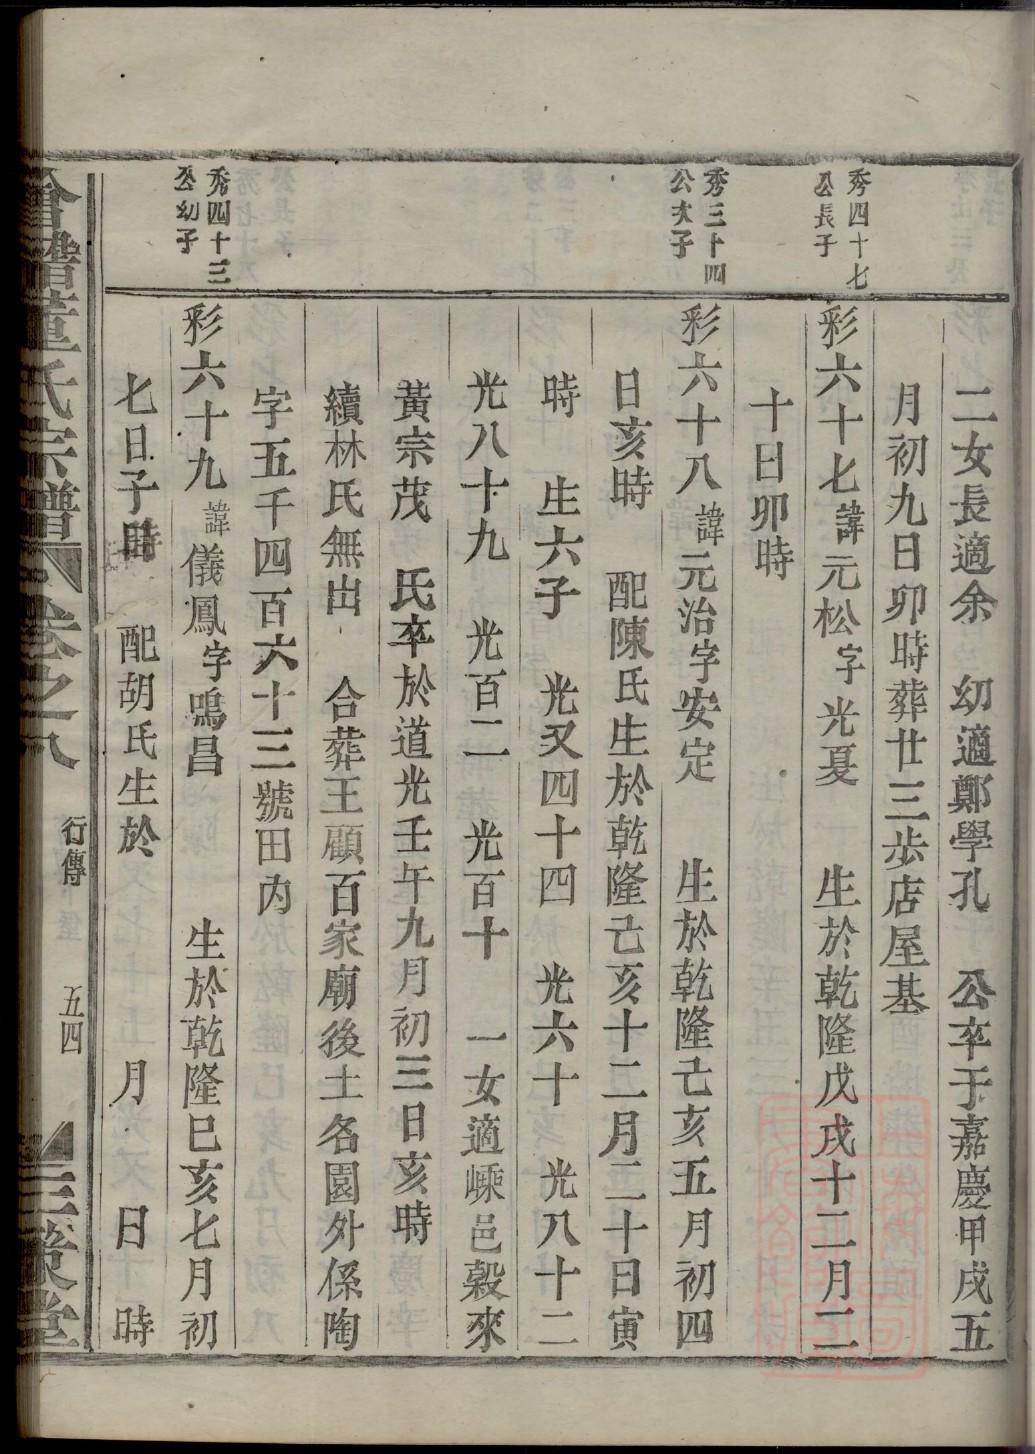 二女長適余　幼適鄭學孔　公卒于嘉慶甲戌五
月初九日卯時葬廿三步店屋基
秀四十七
公長子
彩六十七諱元松字光夏　生於乾隆戊戌十二月二
十日卯時
秀三十四
公次子
彩六十八諱元治字安定　生於乾隆己亥五月初四
日亥時　配陳氏生於乾隆己亥十二月二十日寅
時　生六子　光又四十四　光六十　光八十二
光八十九　光百二　光百十　一女適嵊邑穀來
黃宗茂　氏卒於道光壬午九月初三日亥時
續林氏無出　合葬王顧百家廟後土名園外係陶
字五千四百六十三號田内
秀四十三
公幼子
彩六十九諱儀鳳字鳴昌　生於乾隆巳亥七月初
七日子時　配胡氏生於　月　日　時
董氏宗譜　卷之八　行傳　五四　三策堂